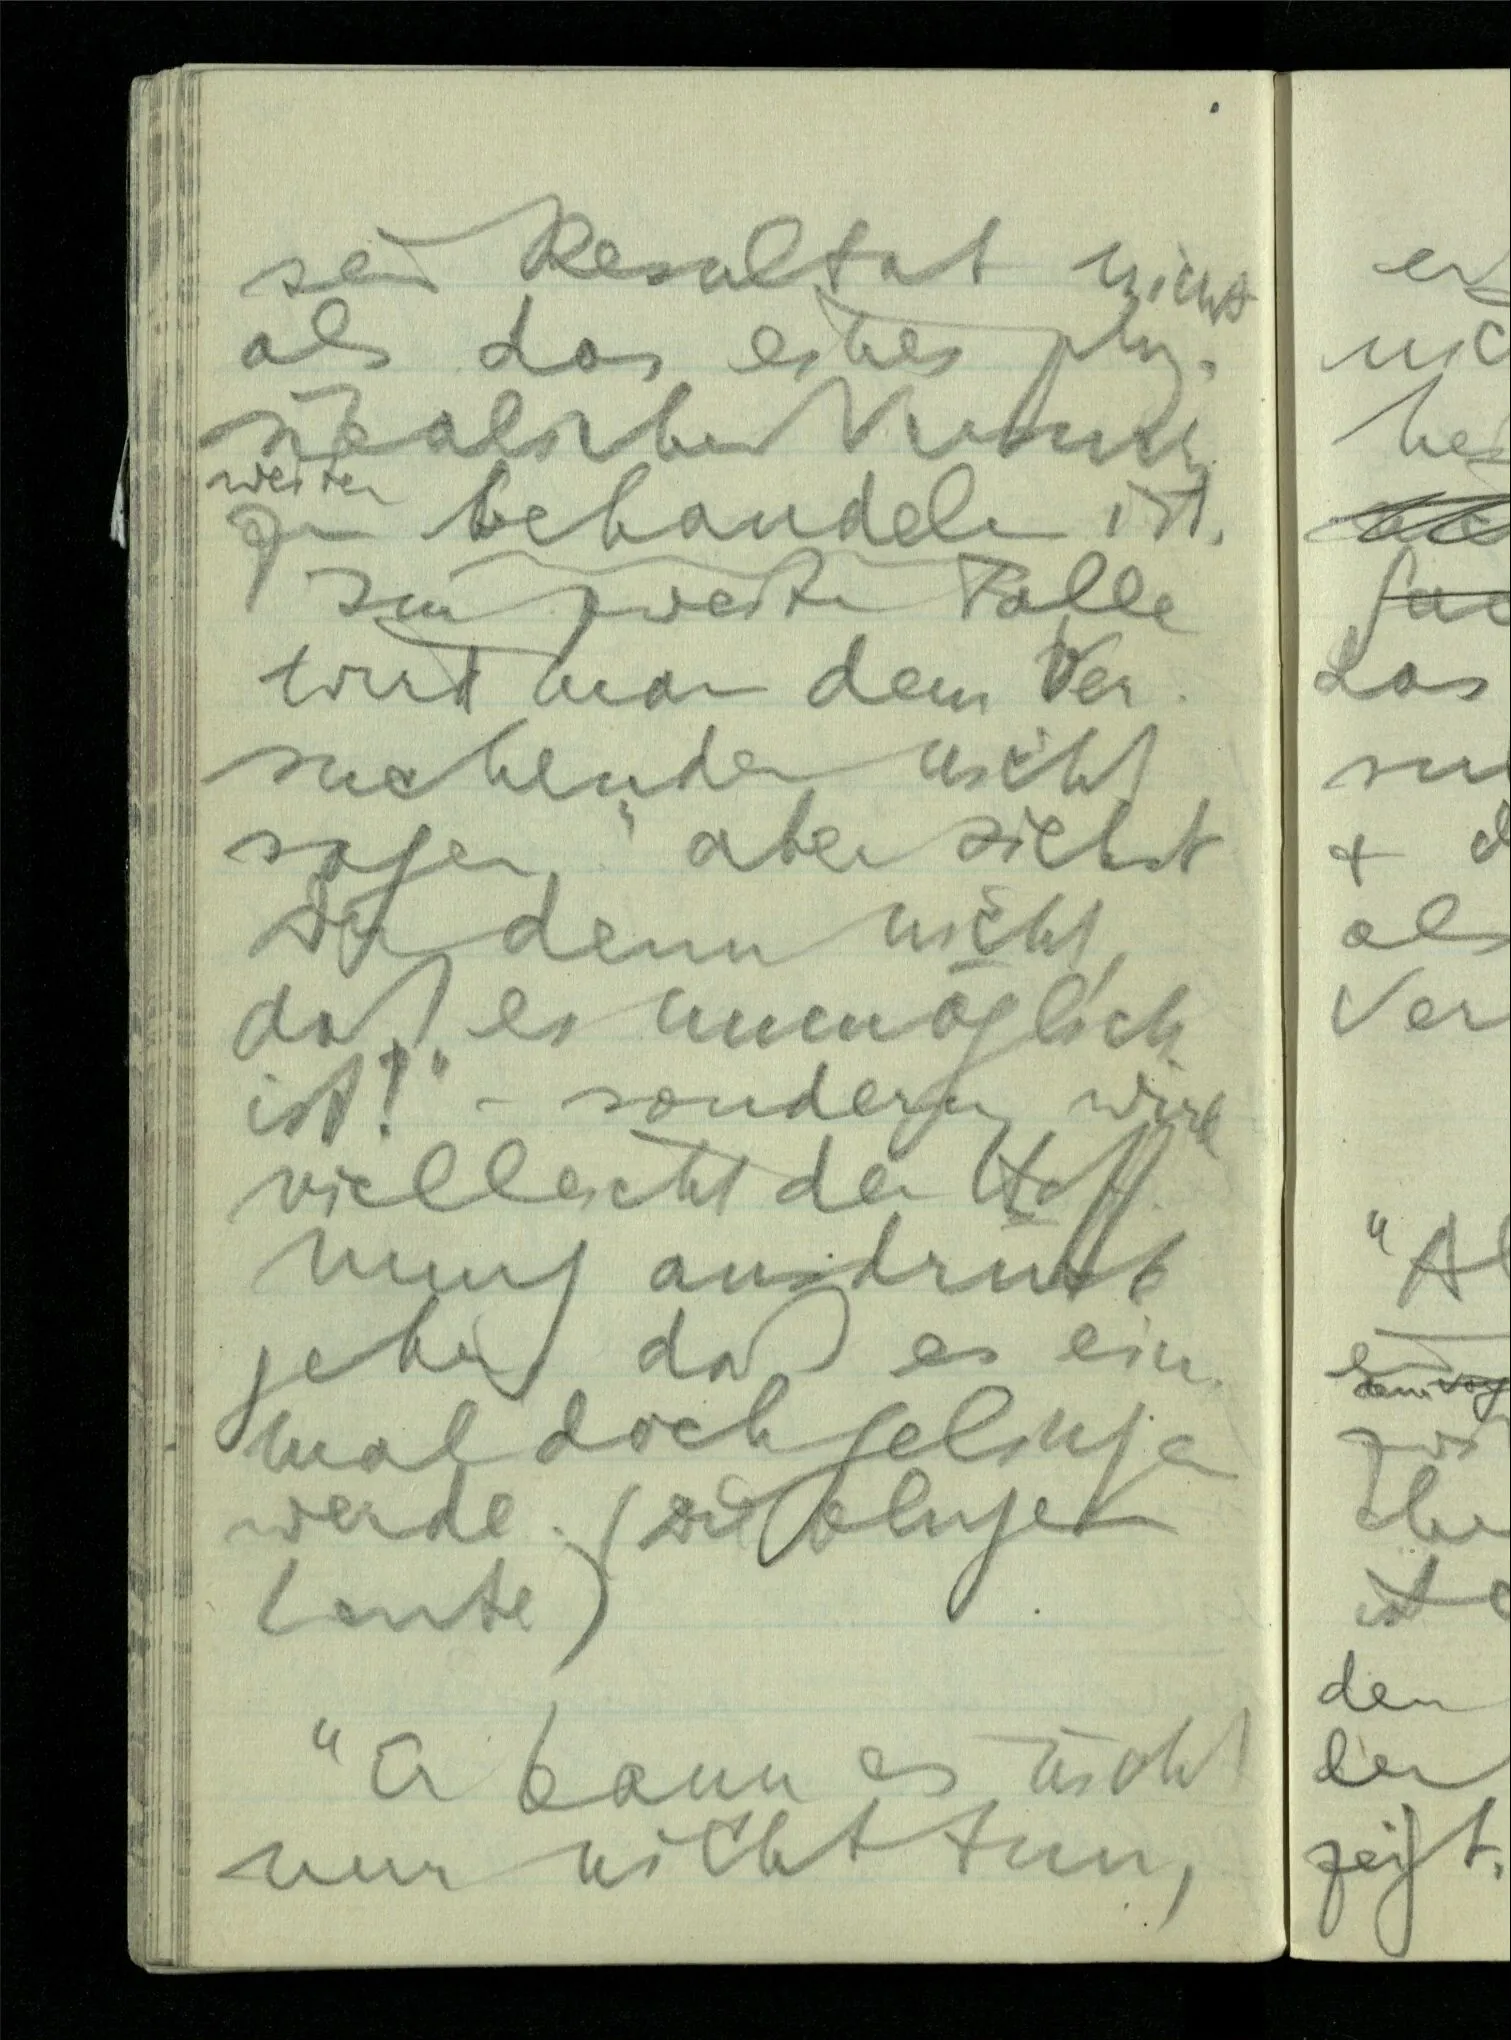 sein Resultat nicht
als das eines phy-
sikalischen Versuchs
weiter
zu behandeln ist.
Im zweiten Falle
wird man dem Ver-
suchenden nicht
sagen "aber siehst
Du denn nicht,
daß es unmöglich
ist!" – sondern wird
vielleicht der Hoff-
nung ausdruck
geben daß es ein-
mal doch gelingen
werde. (Die
Leute)
"Er kann es nicht
nur nicht tun,
"Al
als
Ver
den
zeigt.